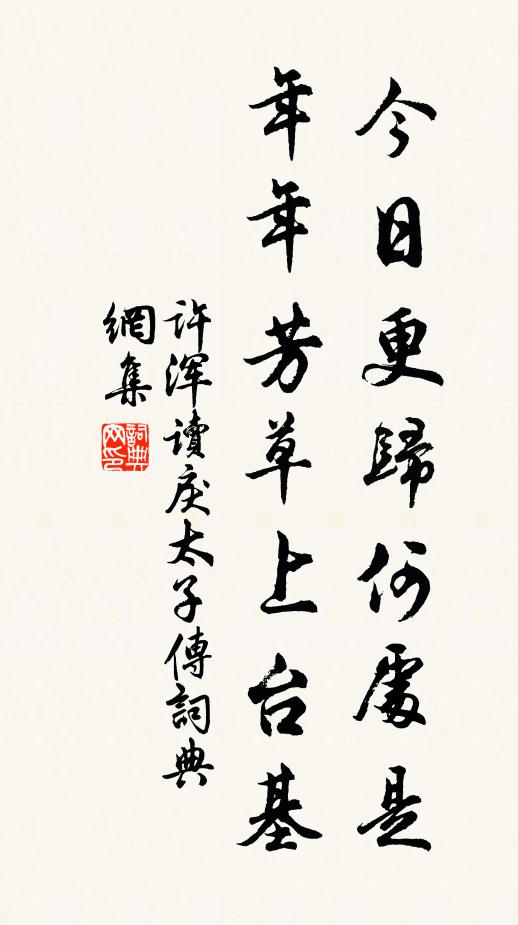 今日更歸何處是
年年芳草上台基
許渾讀戾太子傳詞典
網集
詞典網印